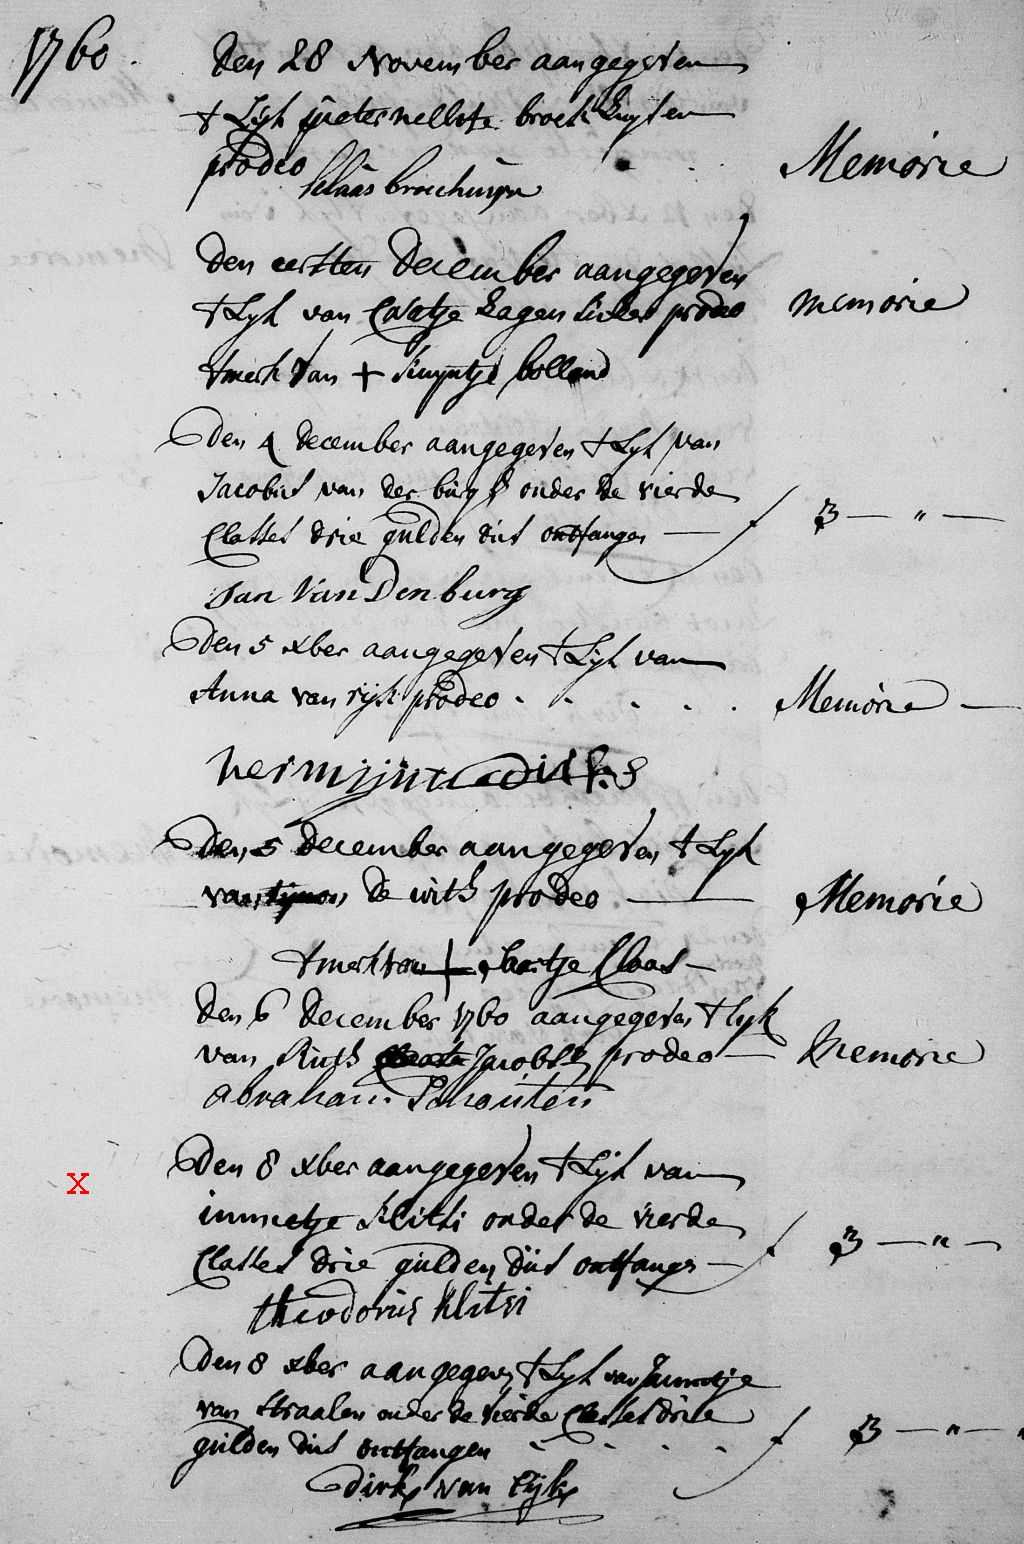 1760.
Den 28 November aangegeven
t Lijk pieternelletje broekhuysen
prodeo Memorie
klaas broekhuysen
Den eersten December aangegeven
t Lyk van prodeo memorie
tmerk van + kuyntje holland
Den 4 december aangegeven t Lyk van
Jacobus van der burg onder de vierde
Classes drie gulden dus ontfangen — ƒ 3 — " —
Jan Van Den burg
Den 5 xber aangegeven t Lijk van
Anna van rijk prodeo . . . . . Memorie —
hermijntie dirks
Den 5 december aangegeven t Lyk
van tijmon de with prodeo — Memorie
tmerk van + Claas —
Den 6 december 1760 aangegeven t lyk
van Ruth Jacobse prodeo — Memorie
abraham Schouten
X
Den 8 xber aangegeven t Lijk van
immetje Klitsi onder de vierde
Classes drie gulden dus ontfange — ƒ 3 — " —
theodorus Klitsi
Den 8 xber aangegeven t Lyk van Jannetje
van Straalen onder de vierde Classes drie
gulden dus ontfangen - . . . ƒ 3 — " —
dirk van Eijk